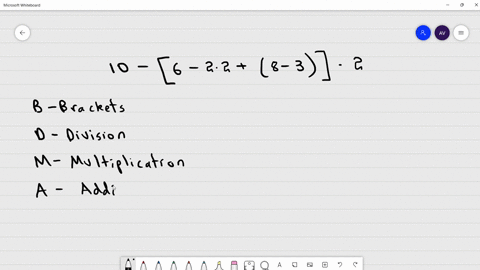 Microsoft Whiteboard
AV
10 - [6 - 2·2 + (8 - 3)] · 2
B - Brackets
D - Division
M - Multiplication
A - Addi